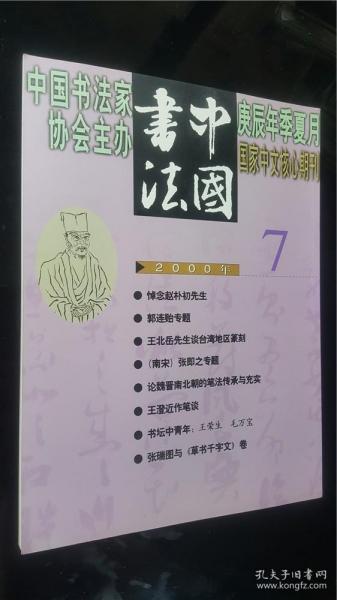 中国书法家
协会主办
中國
書法
庚辰年季夏月
国家中文核心期刊
7
2000年
悼念赵朴初先生
郭连贻专题
王北岳先生谈台湾地区篆刻
(南宋)张即之专题
论魏晋南北朝的笔法传承与充实
王澄近作笔谈
书坛中青年:王荣生 毛万宝
张瑞图与《草书千字文》卷
孔夫子旧书网
www.kongfz.com